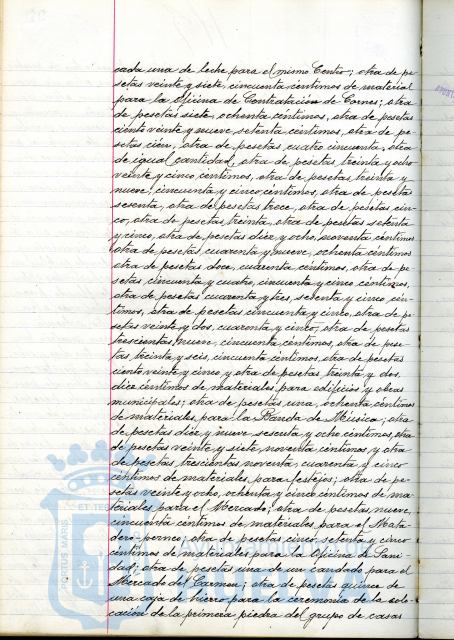 cada una de leche para el mismo Centro; otra de pe-
setas veinte y siete, cincuenta céntimos de material
para la Oficina de Contratación de Carnes; otra
de pesetas siete, ochenta céntimos, otra de pesetas
ciento veinte y nueve, setenta céntimos, otra de pe-
setas cien, otra de pesetas cuatro cincuenta, otra
de igual cantidad, otra de pesetas treinta y ocho
veinte y cinco céntimos, otra de pesetas treinta y
nueve, cincuenta y cinco céntimos, otra de pesetas
sesenta, otra de pesetas trece, otra de pesetas cin-
co, otra de pesetas treinta, otra de pesetas setenta
y cinco, otra de pesetas diez y ocho, noventa céntimos
otra de pesetas cuarenta y nueve, ochenta céntimos
otra de pesetas doce, cuarenta céntimos, otra de pe-
setas, cincuenta y cuatro, cincuenta y cinco céntimos,
otra de pesetas cuarenta y tres, setenta y cinco, cén-
timos, otra de pesetas cincuenta y cinco, otra de pe-
setas veinte y dos, cuarenta y cinco, otra de pesetas
trescientas, nueve, cincuenta, céntimos, otra de pese-
tas, treinta y seis, cincuenta céntimos, otra de pesetas
ciento veinte y cinco y otra de pesetas treinta y dos
diez céntimos de materiales, para edificios y obras
municipales; otra de pesetas una, ochenta céntimos
de materiales para la Banda de Música; otra
de pesetas diez y nueve, sesenta y ocho céntimos, otra
de pesetas veinte y siete, noventa céntimos y otra
de pesetas, trescientas noventa, cuarenta y cinco
céntimos de materiales, para festejos; otra de pe-
setas veinte y ocho, ochenta y cinco céntimos de ma-
teriales para el Mercado; otra de pesetas nueve,
cincuenta céntimos de materiales para el Mata-
dero porcuno; otra de pesetas cinco, setenta y cinco
céntimos de materiales para la Oficina de Sani-
dad; otra de pesetas una de un candado para el
Mercado del Carmen; otra de pesetas quince de
una caja de hierro para la ceremonia de la colo-
cación de la primera piedra del grupo de casas